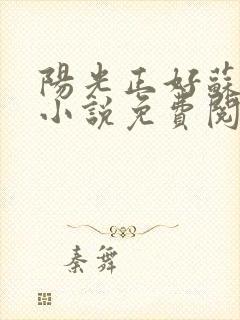 陽光正好蘇
小說免費閱
秦舞